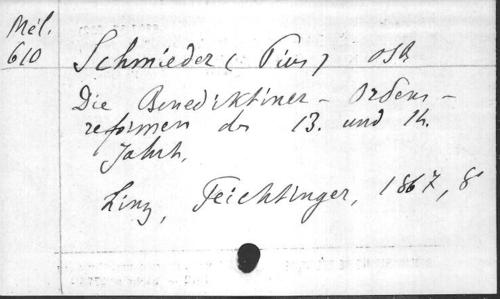 Mél.
610
Schmieder (Pius) OSB
Die Benediktiner-Ordens-
reformen des 13. und 14.
Jahrh.
Linz, Feichtinger, 1867, 8°